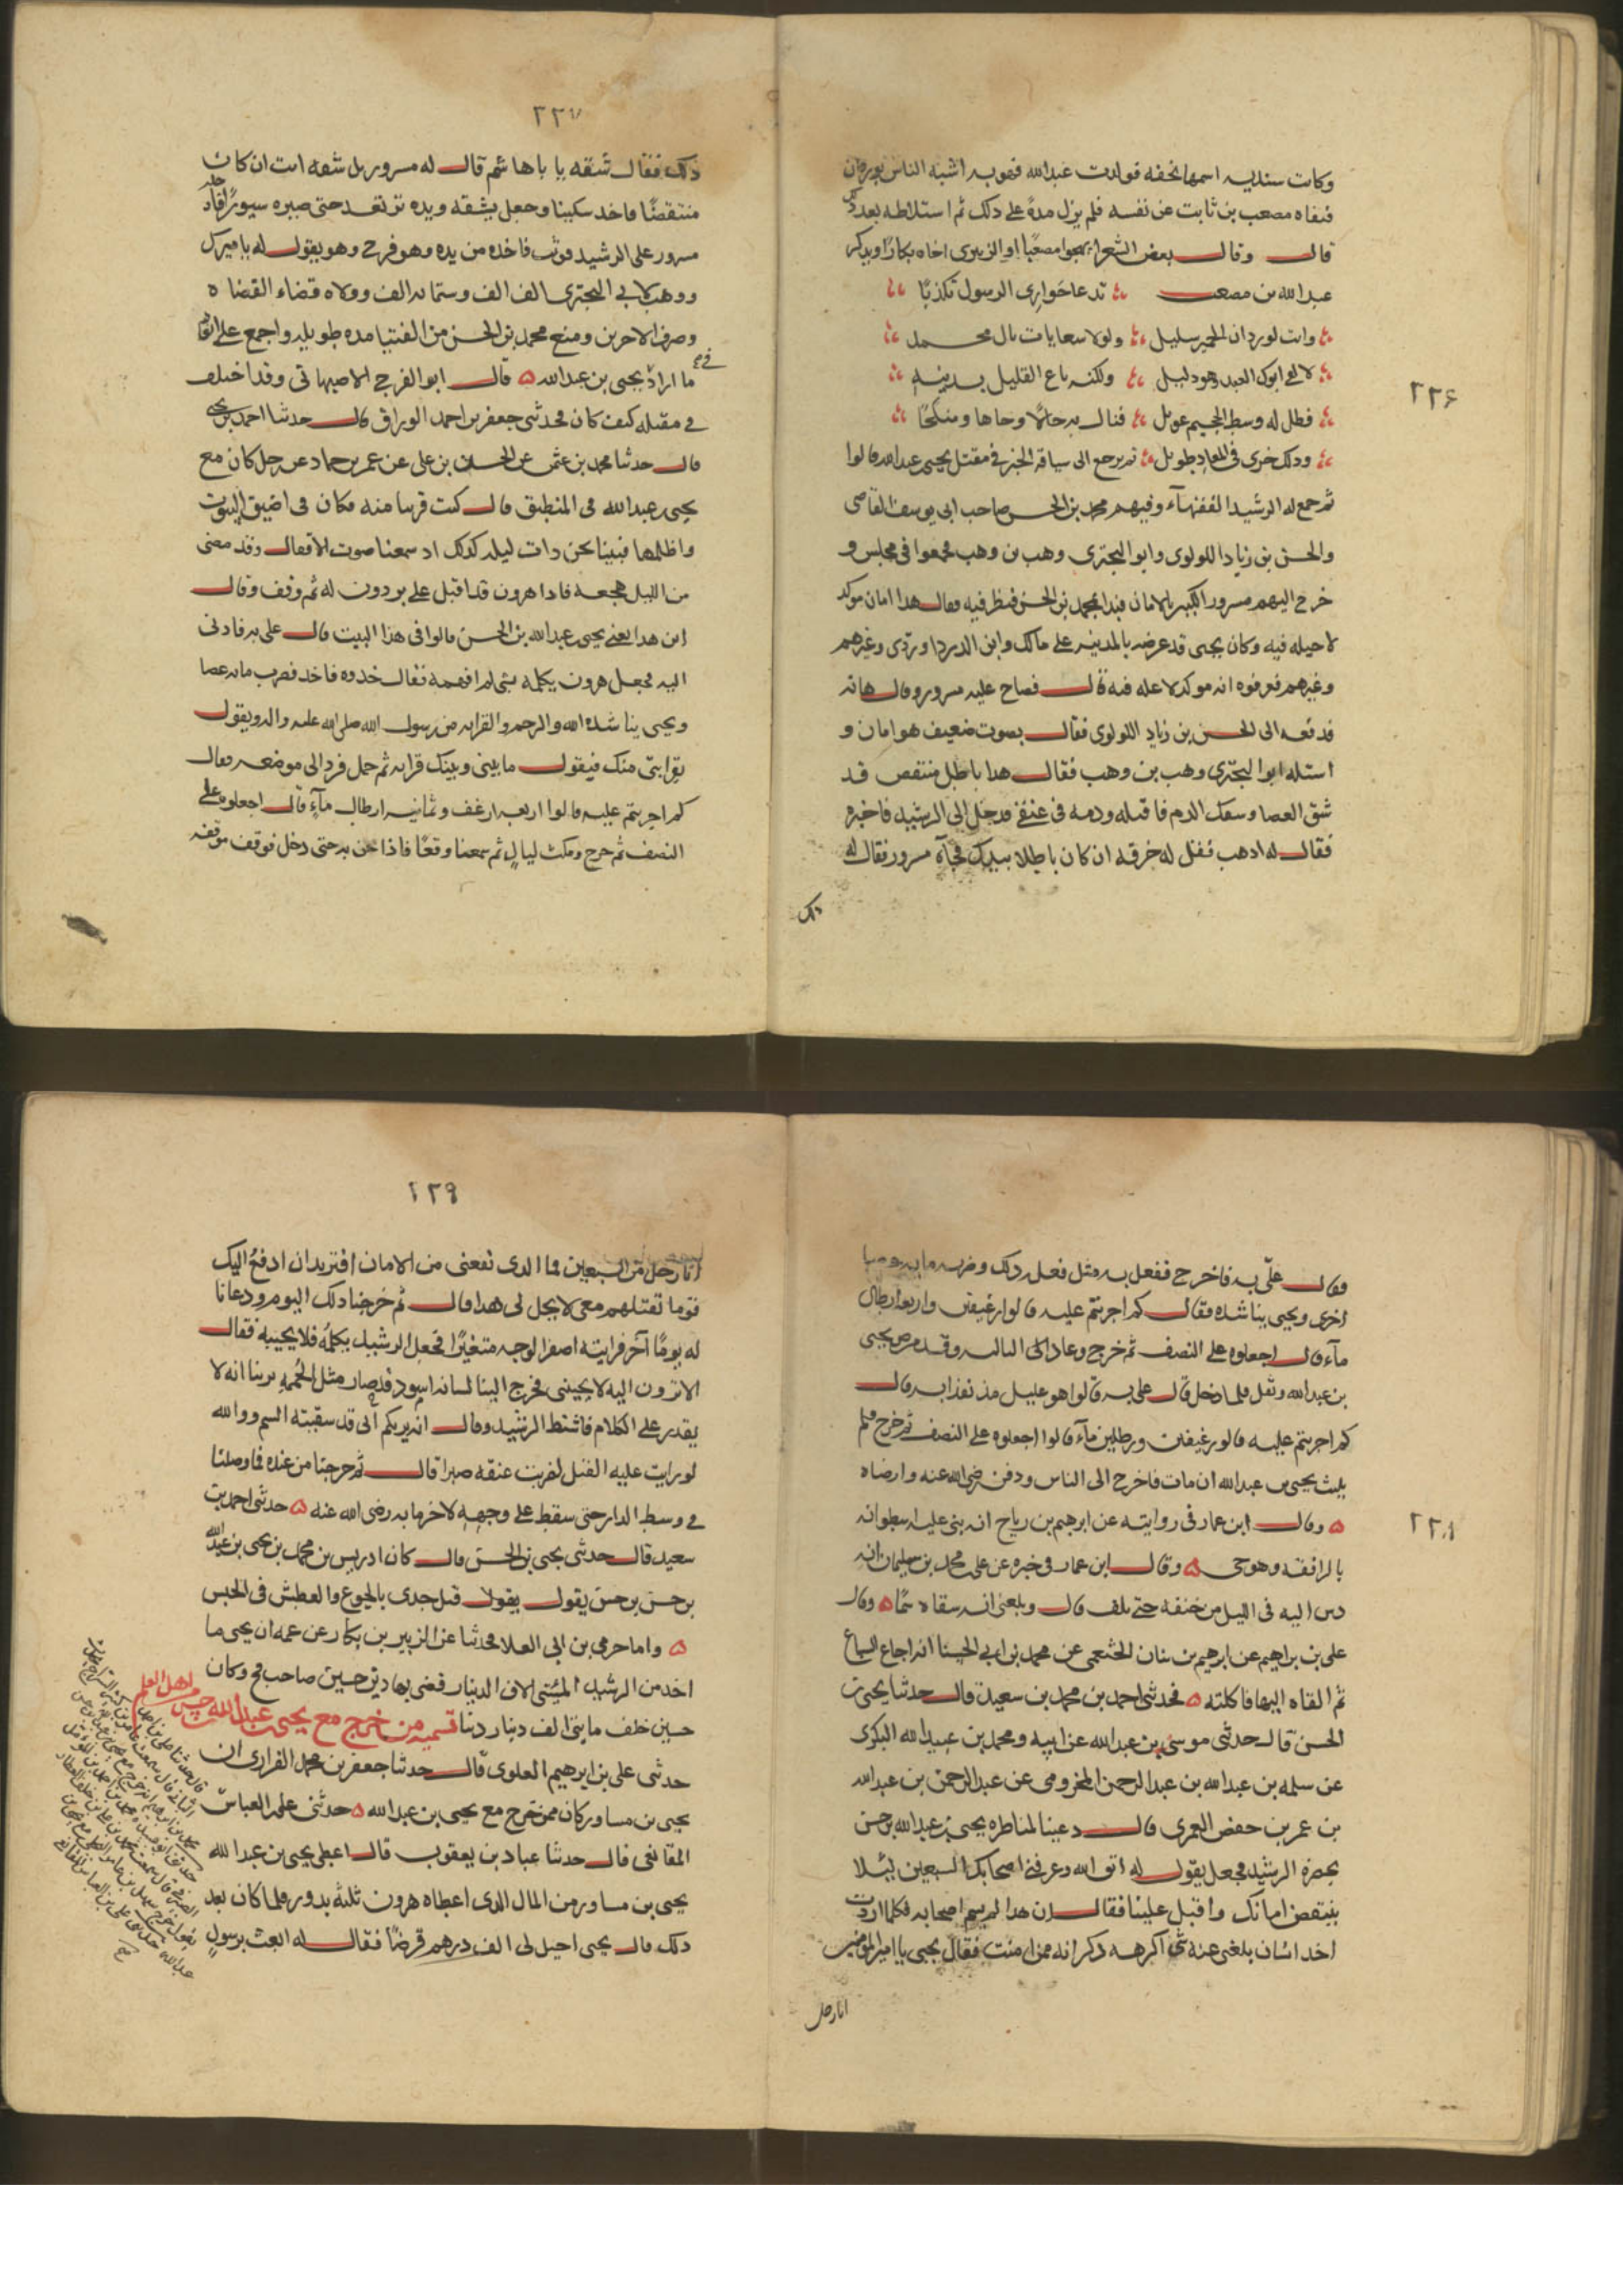 ٢٢٦
وكانت سنديه اسمها تحفه فولدت عبدالله فهو به اشبه الناس بوردان
فنفاه مصعب بن ثابت عن نفسه فلم يزل مدةً على ذلك ثم استلاطه بعد ذلك
قال وقال بعض الشعراء يهجوا مصعبًا او الزبيرى اخاه بكارًا ويذكر
عبدالله بن مصعب تدعا حوارى الرسول تكذبًا
وانت لوردان الحمير سليل ولولا سعايات بال محمد
لالفى ابوك العبد وهو دليل ولكنه باع القليل بدينه
فطل له وسط الجحيم عويل فنال به حالًا وجاها ومنكحًا
وذلك خزى فى المعاد طويل ثم يرجع الى سياقة الخبر فى مقتل يحيى عبدالله قالوا
ثم جمع له الرشيد الفقهآء وفيهم محمد بن الحسن صاحب ابى يوسف القاضى
والحسن بن زياد اللولوى وابوا البخترى وهب بن وهب فجمعوا فى مجلس و
خرج اليهم مسرور الكبير بالامان فبدا بمحمد بن الحسن فنظر فيه فقال هدا امان موكد
لا حيله فيه وكان يحيى قد عرضه بالمدينه على مالك وابن الدرداوردى وغيرهم
وغيرهم فعرفوه انه موكد لا عله فيه قال فصاح عليه مسرور وقال هاته
فدفعه الى الحسن بن زياد اللولوى فقال بصوت ضعيف هو امان و
استله ابوا البخترى وهب بن وهب فقال هدا باطل منتقض قد
شق العصا وسفك الدم فاقتله ودمه فى عنقى فدخل الى الرشيد فاخبره
فقال له ادهب فقل له خرقه ان كان باطلا بيدك فجآه مسرور فقال له
ذلك
٢٢٧
ذلك فقال شقه يا باها شم قال له مسرور بل شقه انت ان كان
منتقضًا فاخد سكينا وجعل يشقه ويده ترتعد حتى صيره سيورًا فادخله
مسرور على الرشيد فوثب فاخده من يده وهو فرح وهو يقول له يا مبرك
ووهب لابى البخترى الف الف وستمايه الف وولاه قضاء القضاه
وصرف الاخرين ومنع محمد بن الحسن من الفتيا مده طويله واجمع على انفاذ
ما اراد فى يحيى بن عبدالله ۵ قال ابو الفرج الاصبهانى وقد اختلف
فى مقتله كيف كان فحدثنى جعفر بن احمد الوراق قال حدثنا احمد بن يحيى
قال حدثنا محمد بن عثمن عن الحسن بن على عن عمر بن حماد عن رجل كان مع
يحيى بن عبدالله فى المطبق قال كنت قريبا منه فكان فى اضيق البيوت
واظلمها فبينا نحن ذات ليله كذلك اد سمعنا صوت الاقفال وقد مضى
من الليل هجعه فادا هرون قد اقبل على بردون له ثم وقف وقال
اين هدا يعنى يحيى عبدالله بن الحسن قالوا فى هذا البيت قال على به فادنى
اليه فجعل هرون يكلمه بشى لم افهمه فقال خدوه فاخد فضرب مايه عصا
ويحيى يناشده الله والرحم والقرابه من رسول الله صلى الله عليه واله ويقول
بقرابتى منك فيقول ما بينى وبينك قرابه ثم حمل فرد الى موضعه فقال
كم اجريتم عليه قالوا اربعه ارغف وثمانيه ارطال مآء قال اجعلوه على
النصف ثم خرج ومكث ليالٍ ثم سمعنا وقعًا فاذا نحن به حتى دخل فوقف موقفه
٢٢٨
وقال علىّ به فاخرج ففعل به مثل فعله ذلك وضربه مايه عصا
اخرى ويحيى يناشده فقال كم اجريتم عليه قالوا رغيفين واربعه ارطال
مآء قال اجعلوه على النصف ثم خرج وعاد الى الثالثه وقد مرض يحيى
بن عبدالله وثقل فلما دخل قال على به قالوا هو عليل مدنف لما به قال
كم اجريتم عليه قالوا رغيفين ورطلين مآء قالوا اجعلوه على النصف ثم خرج فلم
يلبث يحيى بن عبدالله ان مات فاخرج الى الناس ودفن رضى الله عنه وارضاه
۵ وقال ابن عمار فى روايته عن ابرهيم بن رياح انه بنى عليه اسطوانه
بالرافقه وهو حى ۵ وقال ابن عمار فى خبره عن على محمد بن سليمان انه
دس اليه فى الليل من خنقه حتى تلف قال وبلغنى انه سقاه سمًا ۵ وقال
على بن ابراهيم عن ابرهيم بن بنان الخثعمى عن محمد بن ابى الحسنا انه اجاع السباع
ثم القاه اليها فاكلته ۵ فحدثنى احمد بن محمد بن سعيد قال حدثنا يحيى بن
الحسن قال حدثنى موسى بن عبدالله عن ابيه ومحمد بن عبيد الله البكرى
عن سلمه بن عبدالله بن عبد الرحمن المخزومى عن عبد الرحمن بن عبدالله
بن عمر بن حفص العمرى قال دعينا لمناظره يحيى بن عبدالله بن حسن
بحضرة الرشيد فجعل يقول له اتق الله وعرفنى اصحابك السبعين ليلا
ينتقض امانك واقبل علينا فقال ان هدا لم يسم اصحابه فكلما اردت
اخد انسان بلغنى عنه شى اكرهه ذكر انه ممن امنت فقال يحيى يا امير المومنين
انا رجل
٢٢٩
انا رجل من السبعين فما الدى نفعنى من الامان افتريد ان ادفع اليك
قوما تقتلهم معى لا يحل لى هدا قال ثم خرجنا ذلك اليوم ودعانا
له يومًا آخر فرايته اصفر الوجه متغيرًا فجعل الرشيد يكلمه فلا يجيبه فقال
الا ترون اليه لا يجيبنى فخرج الينا لسانه اسود قد صار مثل الحُممه يرينا انه لا
يقدر على الكلام فاشتط الرشيد وقال انه يريكم انى قد سقيته السم ووالله
لو رايت عليه القتل لضربت عنقه صبرا قال ثم خرجنا من عنده فما وصلنا
فى وسط الدار حتى سقط على وجهه لاخر ما به رضى الله عنه ۵ حدثنى احمد بن
سعيد قال حدثنى يحيى بن الحسن قال كان ادريس بن محمد بن يحيى بن عبدالله
بن حسن بن حسن يقول يقول قتل جدى بالجوع والعطش فى الحبس
۵ واما حرمى بن ابى العلا فحدثنا عن الزبير بن بكار عن عمه ان يحيى ما
اخد من الرشيد المئتى الاف الدينار قضى بها دين حسين صاحب فخ وكان
حسين خلف مايتى الف دينار دينا تسميه من خرج مع يحيى بن عبدالله بن حسن
من اهل العلم
حدثنى على بن ابرهيم العلوى قال حدثنا جعفر بن محمد الفزارى ان
يحيى بن مساور كان ممن خرج مع يحيى بن عبدالله ۵ حدثنى على العباس
المقانعى قال حدثنا عباد بن يعقوب قال اعطى يحيى بن عبدالله
يحيى بن مساور من المال الدى اعطاه هرون ثلثه بدور فلما كان بعد
ذلك قال يحيى احيل لى الف درهم قرضًا فقال له ابعث برسول